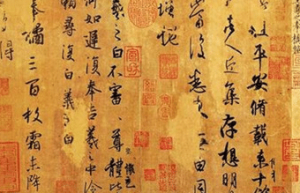 粗平安脩載來十
諸人近集存想明
當復悉來無由同
增慨
羲之白不審尊體比
何如遲復奉告羲之中冷
復白羲之白
橘三百枚霜未降
得